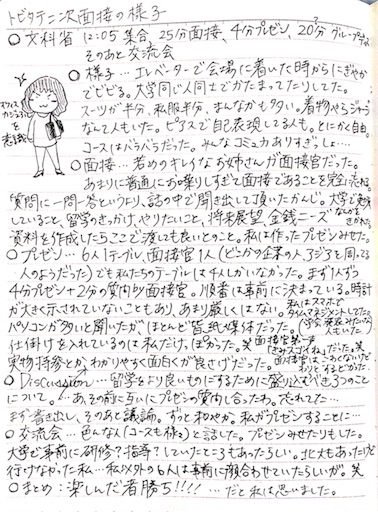 トビタテ二次面接の様子
○文科省 12:05 集合、25分面接、4分プレゼン、20?分グループディスカ
そのあと交流会
○様子…エレベーターで会場に着いた時からにぎやか
でビビる。大学同じ人同士でかたまってたりしてた。
スーツが半分、私服半分、まんなかも多い。着物やらジャージ
なんて人もいた。ピアスで自己表現してる人も。とにかく自由。
コースはバラバラだった。みんなコミュ力ありすぎでしょ…
オフィスカジュアルを意識
○面接…若めのキレイなお姉さんが面接官だった。
あまりに普通にお喋りしすぎて面接であることを完全に忘れる。
質問に一問一答というより、話の中で聞き出して頂いたかんじ。大学で勉強
していること、留学のきっかけ、やりたいこと、将来展望、金銭ニーズなんかをきかれた
資料を作成したらここで渡しても良いとのこと。私は作ったプレゼンみせた。
○プレゼン…6人1テーブル、面接官1人(どこかの企業の人、シニアも周ってる
人のようだった)でも私たちのテーブルは4人しかいなかった。まず1人ずつ
4分プレゼン+2分の質問by面接官。順番は事前に決まっている。時計
が大きく示されていないこともあり、あまり厳しくはない。私はスマホでタイムマネジメントしてた。
パソコンが多いと聞いたが、ほとんど皆紙媒体だった。
仕掛けを入れているのは私だけっぽかった。笑
実物持参とか、わかりやすく面白くが良さげだった。
○Discussion…留学をより良いものにするために盛り込むべき3つのこと
について。…あ、その前に互いにプレゼンの質問し合ったわ。忘れてた…
まず書き出し、そのあと議論。ずっと和やか。私がプレゼンすることに…
○交流会…色んな人(コースも様々)と話した。プレゼンみせたりもした。
大学で事前に研修?指導?していたところもあったらしい。北大もあったけど
行けなかった私…私以外の6人は事前に顔合わせていたらしいが。笑
○まとめ:楽しんだ者勝ち!!!! …だと私は思いました。